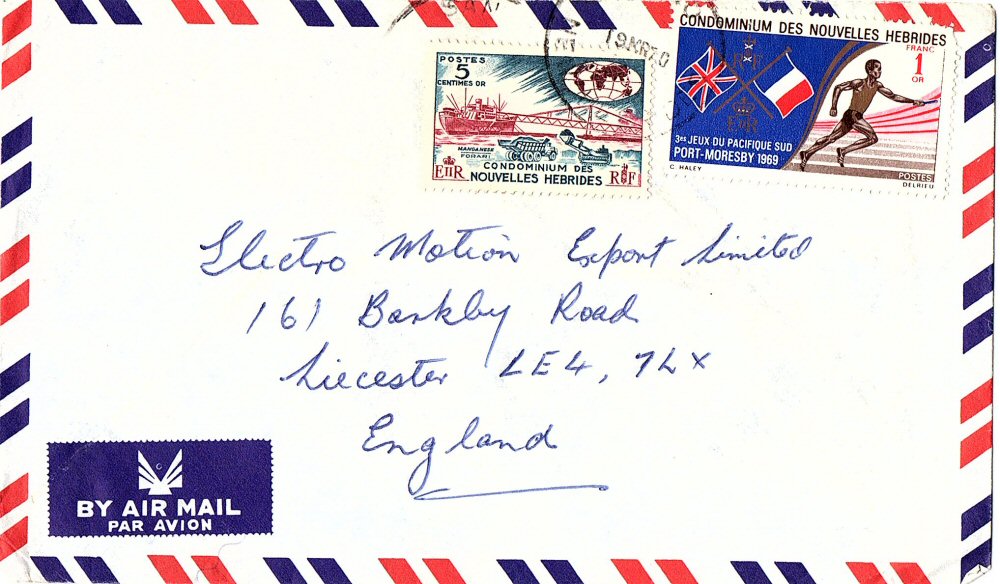 POSTES
5
CENTIMES OR
MANGANESE
FORARI
CONDOMINIUM DES
NOUVELLES HEBRIDES
EIIR
RF
CONDOMINIUM DES NOUVELLES HEBRIDES
FRANC
1
OR
RF
EIIR
3es JEUX DU PACIFIQUE SUD
PORT-MORESBY 1969
C. HALEY
POSTES
DELRIEU
Electro Motion Export Limited
161 Barkby Road
Liecester LE4, 7LX
England
BY AIR MAIL
PAR AVION